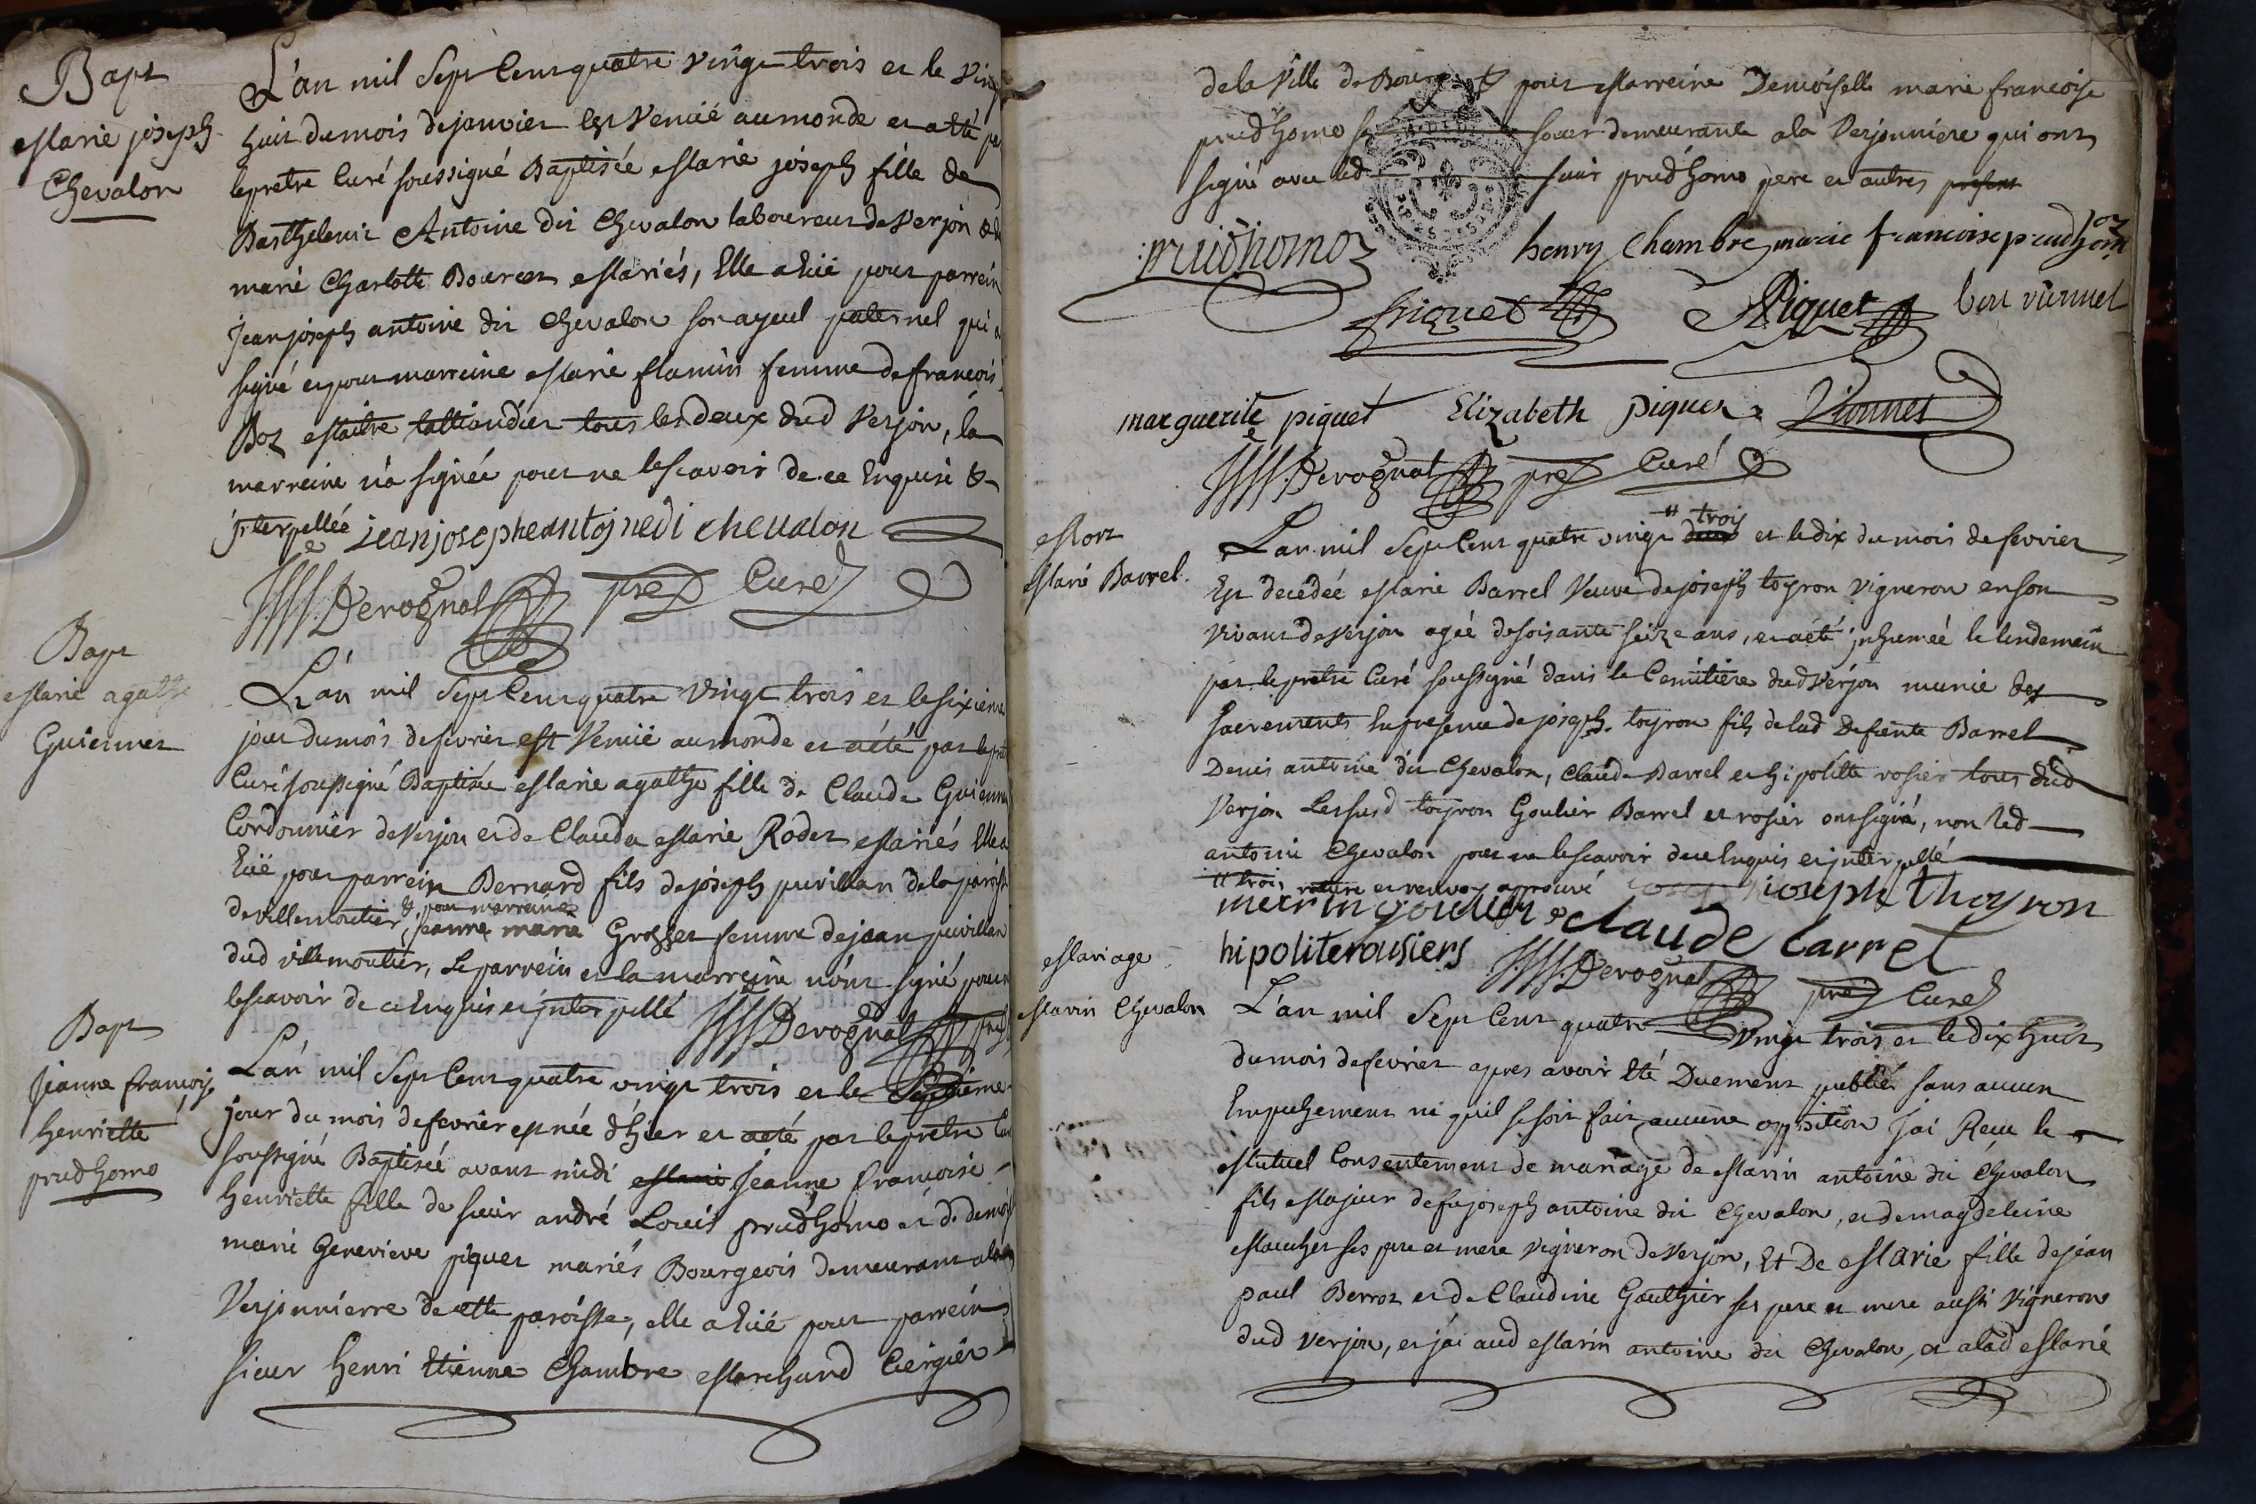 Bapt
Marie joseph
Chevalon
L'an mil Sept Cent quatre vingt trois et le ving
huit du mois de janvier Est Venüe au monde et a été par
le pretre Curé soussigné Baptisée Marie joseph fille de
Barthelemi Antoine dit Chevalon laboureur de Verjon & de
marie Charlotte Bourcet Mariés, Elle a Eüe pour parrein
Jean joseph antoine dit Chevalon son ayeul paternel qui a
signé et pour marreine Marie flamin femme de francois
Boz Maitre taillandier tous les deux dud Verjon, la
marreine n'a signée pour ne le scavoir de ce Enquise &
jnterpellée jean josephe antojne di chevalon
Derognat pre Curé
Bapt
Marie agathe
Guiennet
L'an mil Sept Cent quatre Vingt trois et le sixieme
jour du mois de fevrier est Venüe au monde et a été par le pretre
Curé soussigné Baptisée Marie agathe fille de Claude Guiennet
Cordonnier de Verjon et de Claude Marie Rodet Mariés Elle a
Eüe pour parrein Bernard fils de joseph puvillan de la paroisse
de villemoutier & pour marreine jeanne marie Grosset femme de jean puvillan
dud villemoutier, Le parrein et la marreine n'ont signé pour ne
le scavoir de ce Enquis et jnterpellé Derognat pre
Bapt
Jeanne francoise
henriette
prudhomo
L'an mil Sept Cent quatre vingt trois et le Septieme
jour du mois de fevrier est née d'hier et a été par le pretre Curé
soussigné Baptisée avant midi Marie Jeanne francoise
henriette fille de sieur andré Louis prudhomo et de demoiselle
marie Genevieve piquet mariés Bourgeois demeurant a la
Verjonnierre de cette paroisse, elle a Eüe pour parrein
sieur henri Etienne Chambre Marchand Ciergier
de la Ville de Bourg & pour Marreine Demoiselle marie francoise
prudhomo sa soeur demeurante a la Verjonniere qui ont
signé avec led sieur prudhomo pere et autres present
prudhomoz henry Chambre marie francoise prudhomoz
piquet Piquet vionnet
marguerite piquet Elizabeth piquet Vionnet
Derognat pre Curé
Mort
Marie Barrel
L'an mil Sept Cent quatre vingt deux trois et le dix du mois de fevrier
Est decedée Marie Barrel Veuve de joseph toyron vigneron en son
vivant de Verjon agée de soisante seize ans, et a été jnhumée le lendemain
par le pretre Curé soussigné dans le Cemitière dud Verjon munie des
sacrements En presence de joseph toyron fils de lad Defunte Barrel
Denis antoine dit Chevalon, Claude Barrel et hipolitte rosier tous dud
Verjon Les susd toyron Goulier Barrel et rosier ont signé, non led
antoine Chevalon pour ne le scavoir de ce Enquis et jnterpellé
trois rature et renvoy aprouvé joseph thoyron
merrin goulier claude barrel
hipolite rousiers Derognat pre Curé
Mariage
Marin Chevalon
L'an mil Sept Cent quatre Vingt trois et le dix huit
du mois de fevrier apres avoir Eté Duement publié sans aucun
Empechement ni quil se soit fait aucune opposition J'ai Recu le
Mutuel Consentement de mariage de Marin antoine dit Chevalon
fils Majeur de fu joseph antoine dit Chevalon, et de magdeleine
Mauchet ses pere et mere vigneron de Verjon, Et De Marie fille de jean
paul Berroz et de Claudine Gaulthier ses pere et mere aussi Vigneron
dud verjon, et j'ai aud Marin antoine dit Chevalon, et a lad Marie